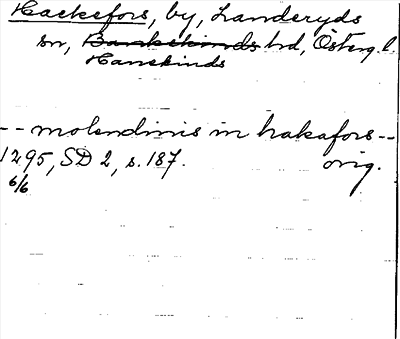 Hackefors, by, Landeryds
sn, Bankekinds hd, Österg. l.
Hanekinds
-- molendinis in hakafors --
1295, SD 2, s. 187. orig.
6/6